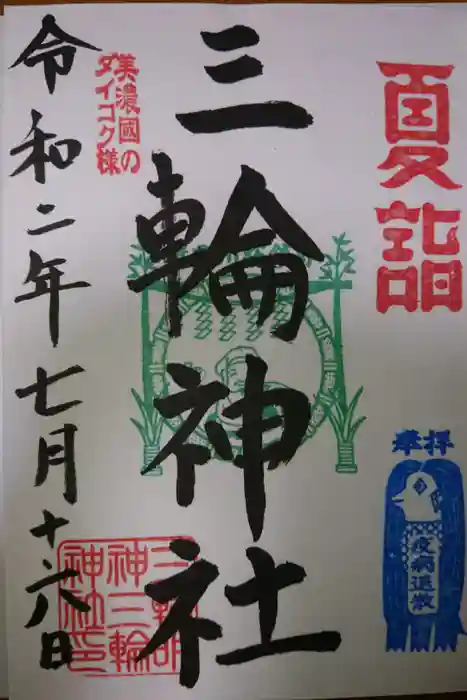 夏詣
奉拝
疫病退散
三輪神社
美濃國の
ダイコク様
三輪明
神三輪
神社印
令和二年七月十六日